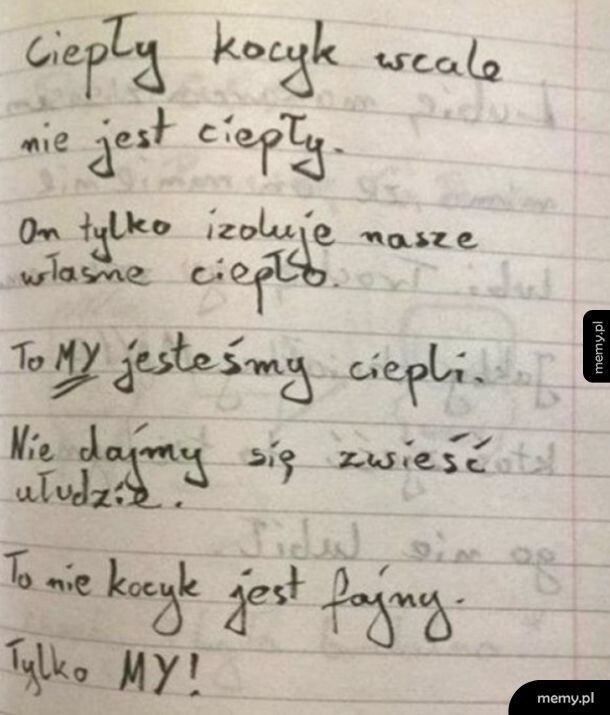 Ciepły kocyk wcale
nie jest ciepły.
On tylko izoluje nasze
własne ciepło.
To MY jesteśmy ciepli.
Nie dajmy się zwieść
ułudzie.
To nie kocyk jest fajny.
Tylko MY!
memy.pl
memy.pl